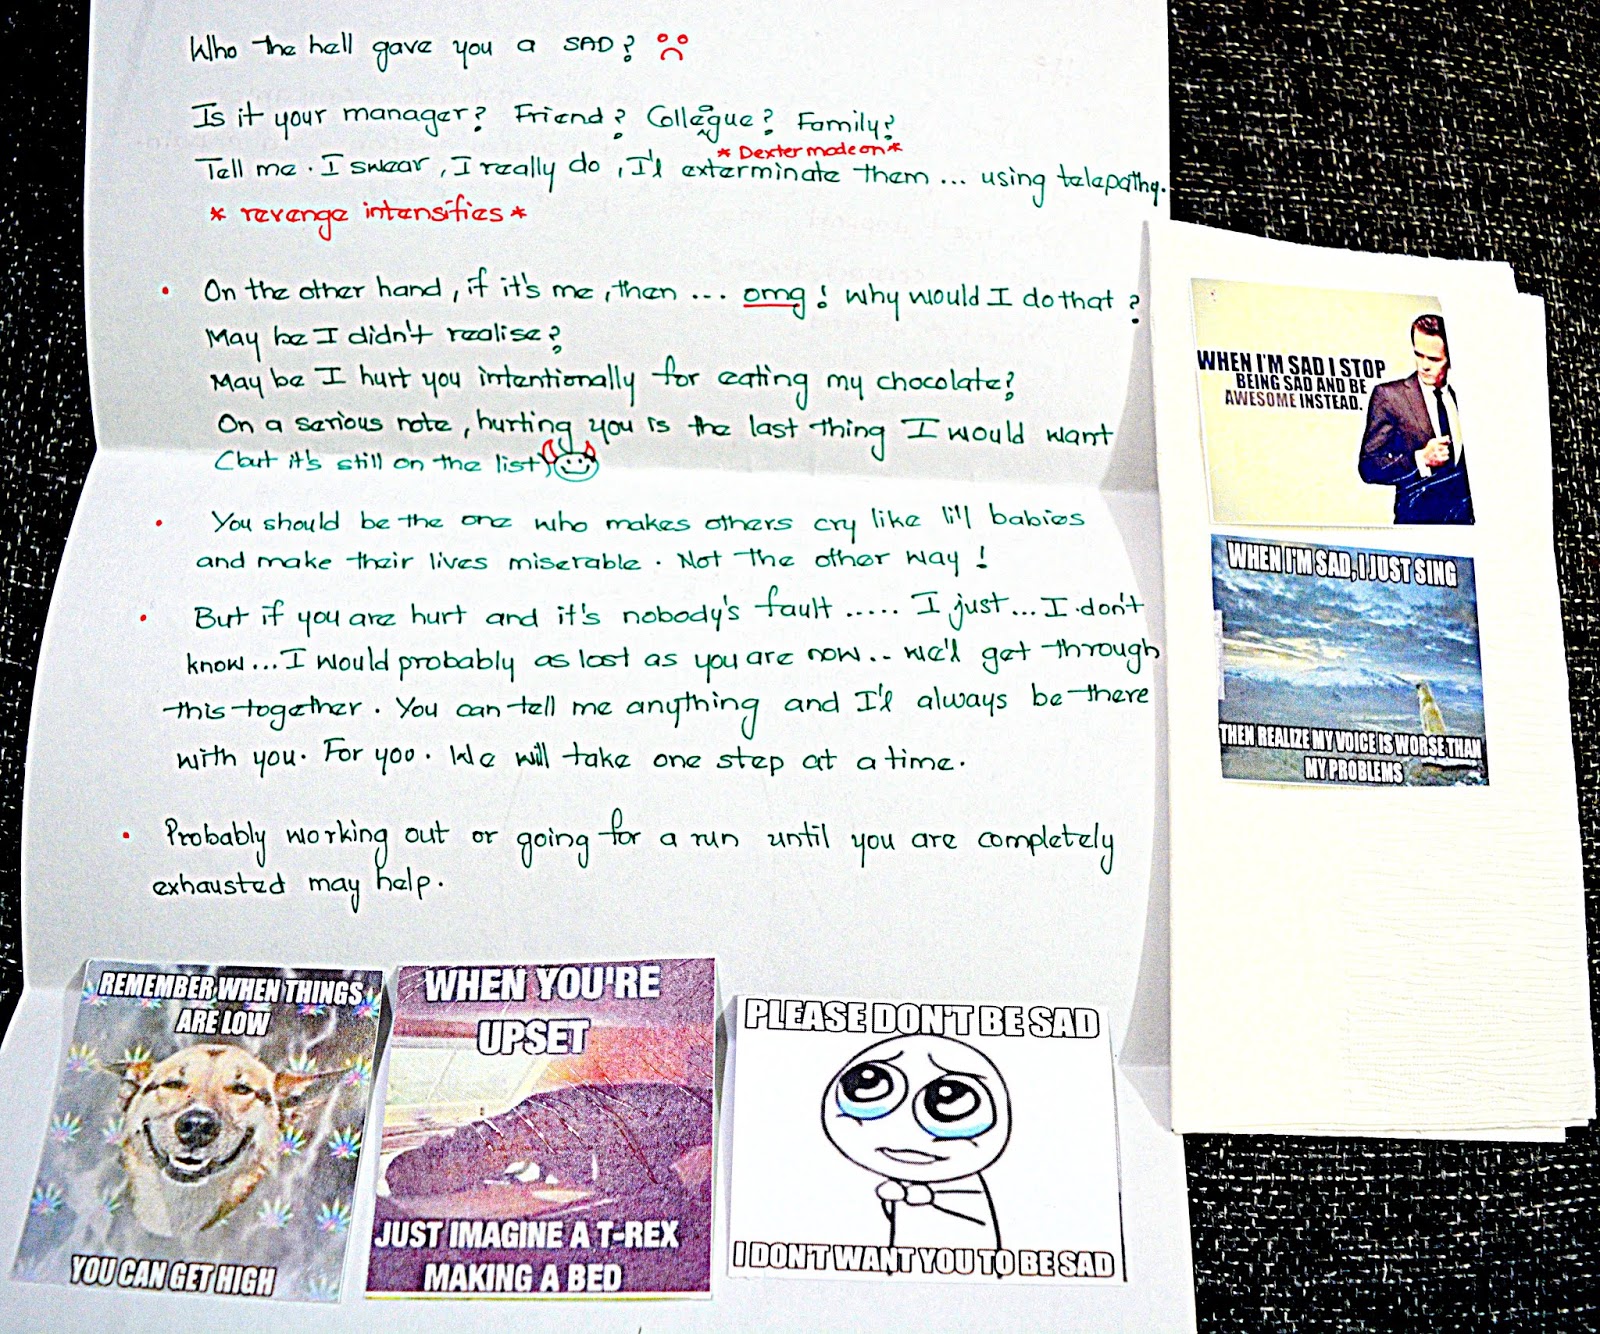 Who the hell gave you a SAD?
Is it your manager? Friend? Collegue? Family?
* Dexter mode on *
Tell me. I swear, I really do, I'l exterminate them ... using telepathy.
* revenge intensifies *
• On the other hand, if it's me, then ... omg! Why would I do that?
May be I didn't realise?
May be I hurt you intentionally for eating my chocolate?
On a serious note, hurting you is the last thing I would want
(but it's still on the list)
• You should be the one who makes others cry like li'll babies
and make their lives miserable. Not the other way!
• But if you are hurt and it's nobody's fault ..... I just... I don't
know... I would probably as lost as you are now.. we'l get through
this together. You can tell me anything and I'l always be there
with you. For yoo. We will take one step at a time.
• Probably working out or going for a run until you are completely
exhausted may help.
REMEMBER WHEN THINGS
ARE LOW
YOU CAN GET HIGH
WHEN YOU'RE
UPSET
JUST IMAGINE A T-REX
MAKING A BED
PLEASE DON'T BE SAD
I DON'T WANT YOU TO BE SAD
WHEN I'M SAD I STOP
BEING SAD AND BE
AWESOME INSTEAD.
WHEN I'M SAD, I JUST SING
THEN REALIZE MY VOICE IS WORSE THAN
MY PROBLEMS